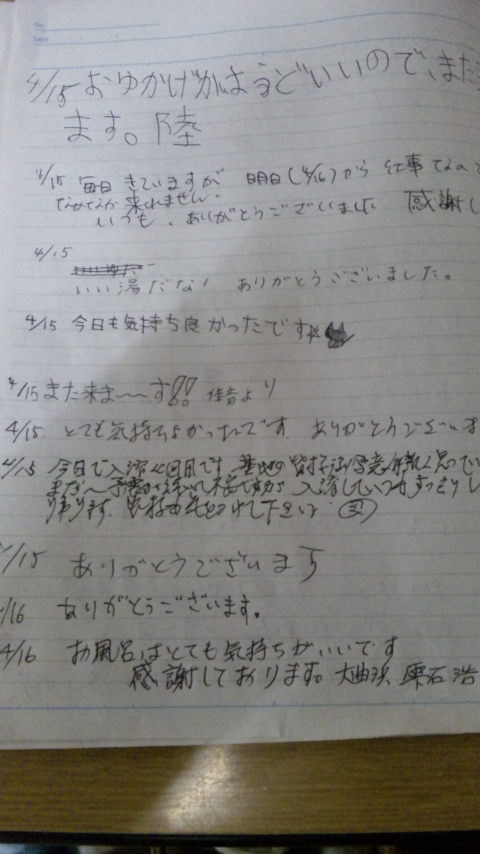 4/15 おゆかげがはょうどいいので、また
ます。陸
4/15 毎日きていますが 明日(4/16)から 仕事なので
なかなか来れません。
いつも、ありがとうございました 感謝し
4/15
いい湯だな! ありがとうございました。
4/15 今日も気持ち良かったです
4/15 また来ま〜〜す!! 佳音より
4/15 とても気持ちよかったです ありがとうございま
4/15 今日で入浴 回目です
まだ〜余震が続いて不安ですが 入浴していつもすっきりし
帰ります 気をつけて下さい
4/15 ありがとうございます
4/16 ありがとうございます。
4/16 お風呂はとても気持ちがいいです
感謝しております。大曲浜 雫石 浩